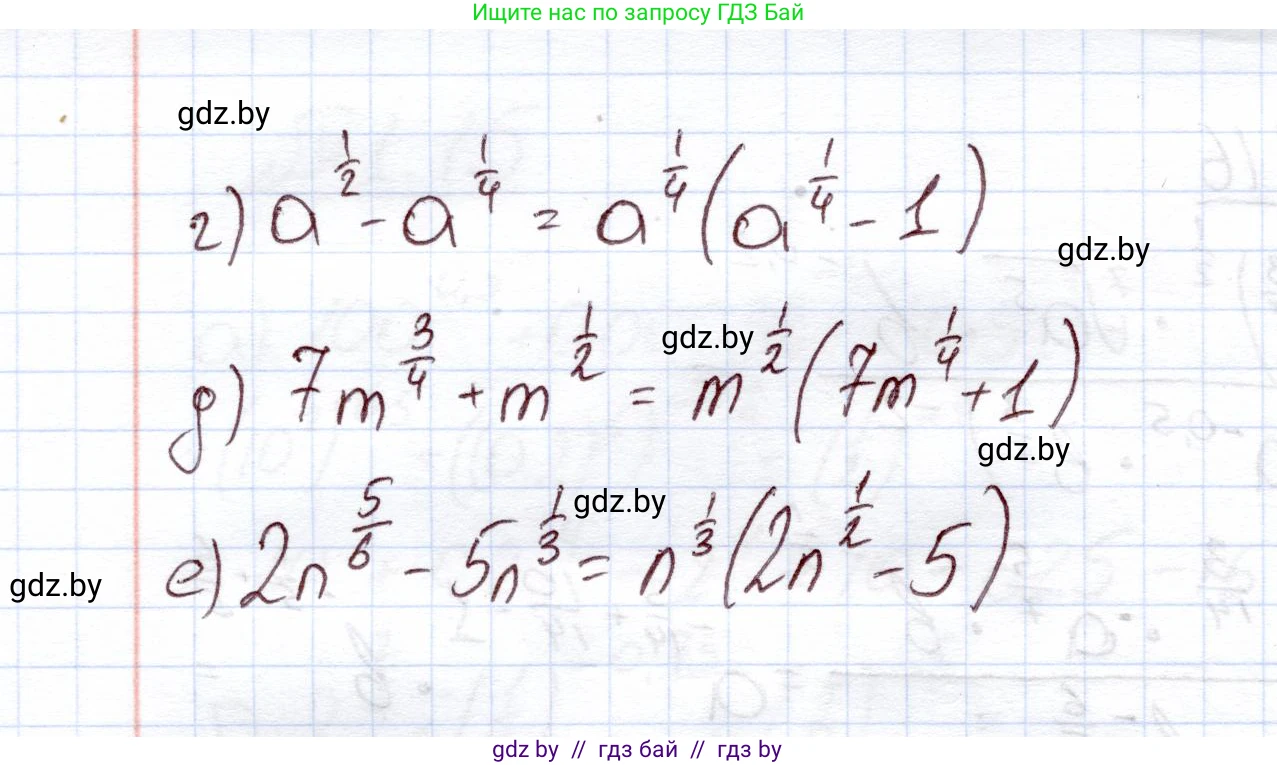 Ищите нас по запросу ГДЗ Бай
gdz.by
г) a^{1/2} - a^{1/4} = a^{1/4}(a^{1/4} - 1)
gdz.by
gdz.by
д) 7m^{3/4} + m^{1/2} = m^{1/2}(7m^{1/4} + 1)
gdz.by
gdz.by
е) 2n^{5/6} - 5n^{1/3} = n^{1/3}(2n^{1/2} - 5)
gdz.by
gdz by // гдз бай // гдз by